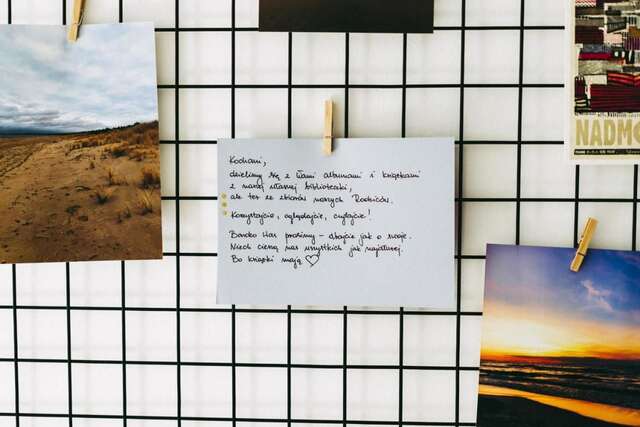 Kochani,
dzielimy się z Wami albumami i książkami
z naszej własnej biblioteczki,
ale też ze zbiorów naszych Rodziców.
Korzystajcie, oglądajcie, czytajcie!
Bardzo Was prosimy – dbajcie jak o swoje.
Niech cieszą nas wszystkich jak najdłużej.
Bo książki mają ♡
NADMO